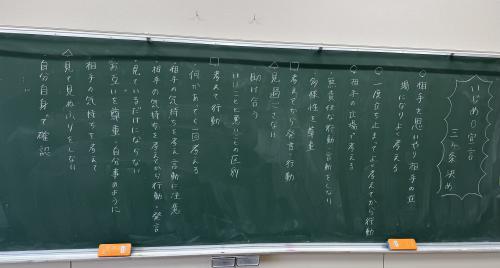 いじめ0宣言
三ヶ条決め
○相手を思いやり相手の立
場になりよく考える
○一度立ち止まってよく考えてから行動
○相手の立場で考える
無責任な行動・言動をしない
多様性を尊重
□考えてから発言・行動
△見過ごさない
助け合う
いいことと悪いことの区別
□考えて行動
・何かあっても一回考える
相手の気持ちを考え言動に注意
相手の気持ちを考えてから行動・発言
・見ているだけにならない
お互いを尊重・自分事のように
相手の気持ちを考えて
△見て見ぬふりをしない
・自分自身で確認